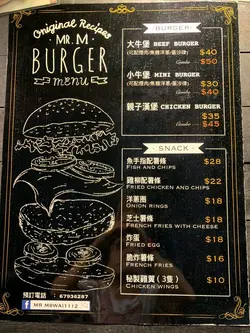 Original Recipes
MR. M
BURGER
MENU
BURGER
大牛堡 BEEF BURGER $40
Combo $50
小牛堡 MINI BURGER $30
Combo $40
親子漢堡 CHICKEN BURGER $35
Combo $45
SNACK
魚手指配薯條 $28
FISH AND CHIPS
雞柳配薯條 $22
FRIED CHICKEN AND CHIPS
洋蔥圈 $18
ONION RINGS
芝士薯條 $18
FRENCH FRIES WITH CHEESE
炸蛋 $18
FRIED EGG
脆炸薯條 $16
FRENCH FRIES
秘製雞翼(3隻) $10
CHICKEN WINGS
預訂電話 : 67936287
f MR.M@WAI1112